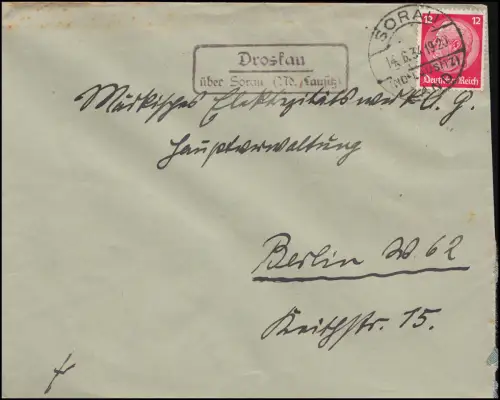 Droskau
über Sorau (Nd. Lausitz)
SORAU
(NDL.
12 12
Deutsches Reich
Märkisches Elektrizitätswerk A. G.
Hauptverwaltung
Berlin W. 62
Keithstr. 15.